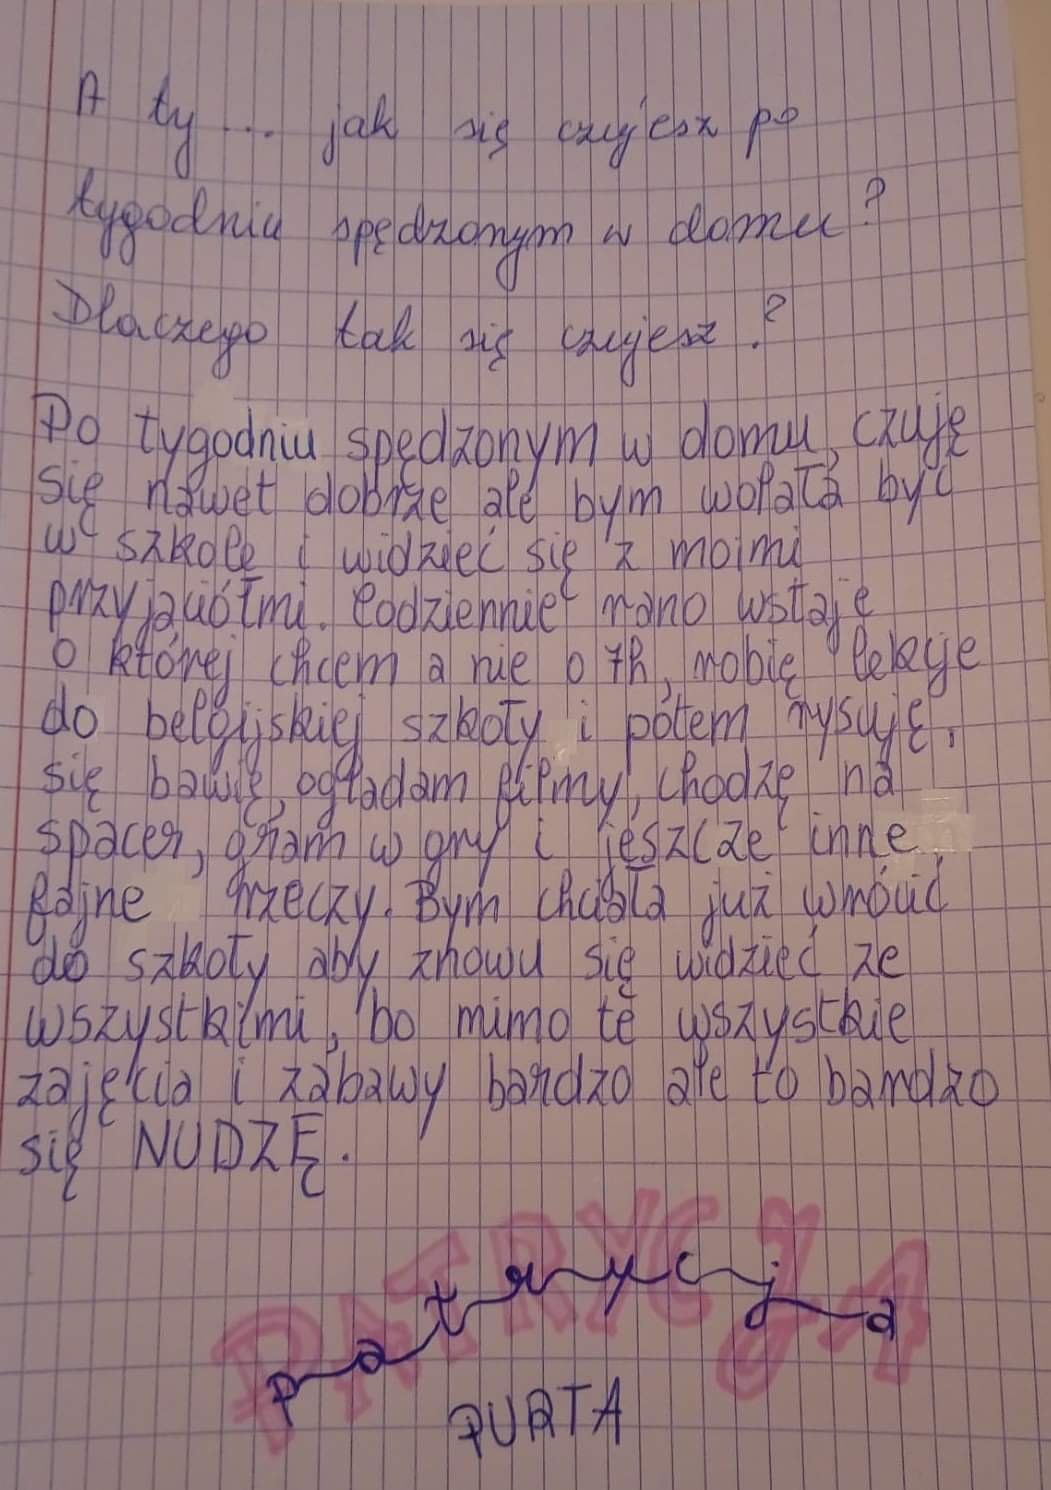 A ty ... jak się czujesz po
tygodniu spędzonym w domu?
Dlaczego tak się czujesz?
Po tygodniu spędzonym w domu, czuję
się nawet dobrze ale bym wolała być
w szkole i widzieć się z moimi
przyjaciółmi. Codziennie rano wstaję
o której chcem a nie o 7h, robię lekcje
do belgijskiej szkoły i potem rysuję,
się bawię, oglądam filmy, chodzę na
spacer, gram w gry i jeszcze inne
fajne rzeczy. Bym chciała już wrócić
do szkoły aby znowu się widzieć ze
wszystkimi, bo mimo te wszystkie
zajęcia i zabawy bardzo ale to bardzo
się NUDZĘ.
PATRYCJA
patrycja
PURTA